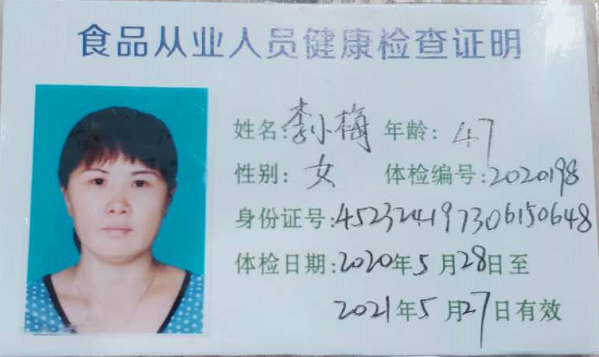 食品从业人员健康检查证明
姓名:李小梅 年龄:47
性别:女 体检编号:2020198
身份证号:452324197306150648
体检日期:2020年5月28日至
2021年5月27日有效